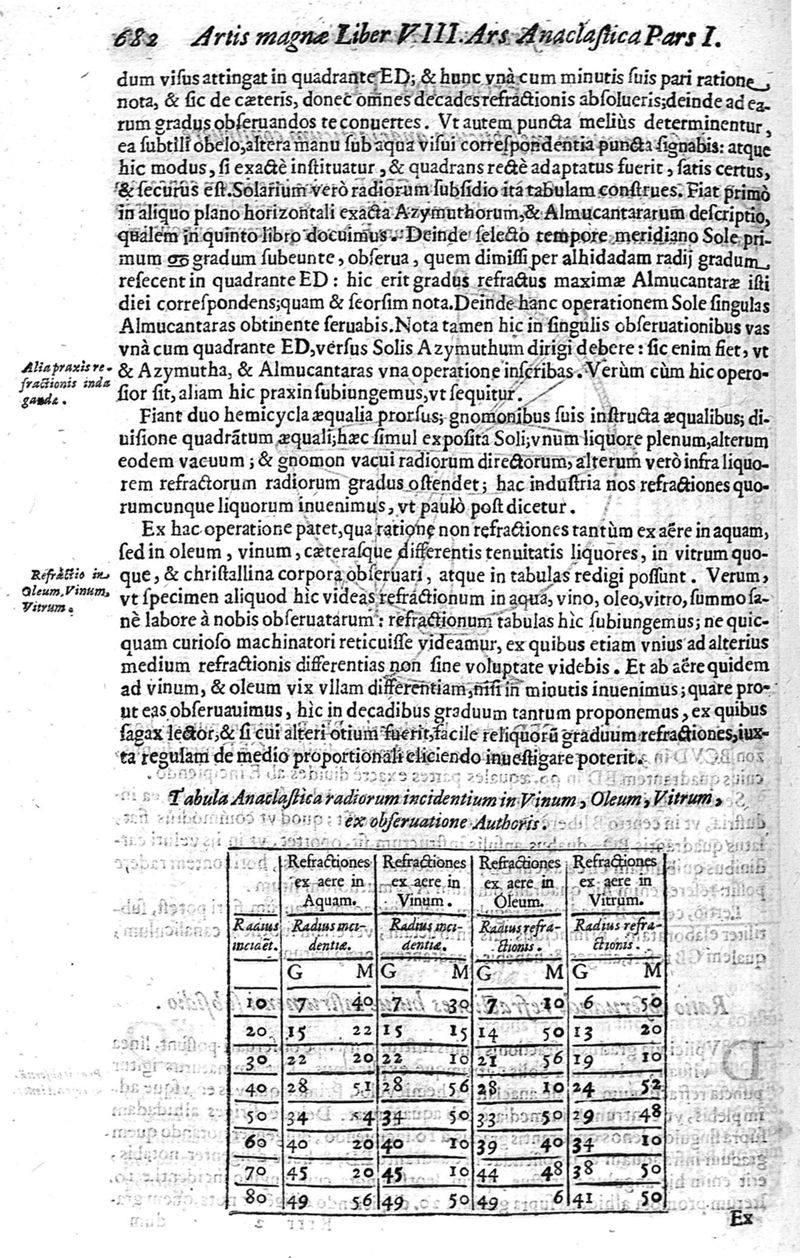 682 Artis magnæ Liber VIII. Ars Anaclaſtica Pars I.
dum viſus attingat in quadrante ED; & hunc vnà cum minutis ſuis pari ratione
nota, & ſic de cæteris, donec omnes decades refractionis abſolueris; deinde ad ea-
rum gradus obſeruandos te conuertes. Vt autem puncta meliùs determinentur,
ea ſubtili obelo, altera manu ſub aqua viſui correſpondentia puncta ſignabis: atque
hic modus, ſi exactè inſtituatur, & quadrans rectè adaptatus fuerit, ſatis certus,
& ſecurus eſt. Solarium verò radiorum ſubſidio ita tabulam conſtrues. Fiat primò
in aliquo plano horizontali exacta Azymuthorum, & Almucantararum deſcriptio,
qualem in quinto libro docuimus. Deinde ſelecto tempore meridiano Sole pri-
mum ♋ gradum ſubeunte, obſerua, quem dimiſſi per alhidadam radij gradum
reſecent in quadrante ED: hic erit gradus refractus maximæ Almucantaræ iſti
diei correſpondens; quam & ſeorſim nota. Deinde hanc operationem Sole ſingulas
Almucantaras obtinente ſeruabis. Nota tamen hic in ſingulis obſeruationibus vas
vnà cum quadrante ED, verſus Solis Azymuthum dirigi debere: ſic enim fiet, vt
& Azymutha, & Almucantaras vna operatione inſcribas. Verùm cùm hic opero-
ſior ſit, aliam hic praxin ſubiungemus, vt ſequitur.
Alia praxis re-
fractionis inda
gandæ.
Fiant duo hemicycla æqualia prorſus; gnomonibus ſuis inſtructa æqualibus; di-
uiſione quadrãtum æquali; hæc ſimul expoſita Soli; vnum liquore plenum, alterum
eodem vacuum; & gnomon vacui radiorum directorum, alterum verò infra liquo-
rem refractorum radiorum gradus oſtendet; hac induſtria nos refractiones quo-
rumcunque liquorum inuenimus, vt paulò poſt dicetur.
Ex hac operatione patet, qua ratione non refractiones tantùm ex aëre in aquam,
ſed in oleum, vinum, cæteraſque differentis tenuitatis liquores, in vitrum quo-
que, & chriſtallina corpora obſeruari, atque in tabulas redigi poſſunt. Verum,
vt ſpecimen aliquod hìc videas refractionum in aqua, vino, oleo, vitro, ſummo ſa-
nè labore à nobis obſeruatarum: refractionum tabulas hìc ſubiungemus; ne quic-
quam curioſo machinatori reticuiſſe videamur, ex quibus etiam vnius ad alterius
medium refractionis differentias non ſine voluptate videbis. Et ab aëre quidem
ad vinum, & oleum vix vllam differentiam, niſi in minutis inuenimus; quare pro-
ut eas obſeruauimus, hìc in decadibus graduum tantum proponemus, ex quibus
ſagax lector, & ſi cui alteri otium fuerit, facile reliquorũ graduum refractiones, iux-
ta regulam de medio proportionali eliciendo inueſtigare poterit.
Refractio in
Oleum, Vinum,
Vitrum.
Tabula Anaclaſtica radiorum incidentium in Vinum, Oleum, Vitrum,
ex obſeruatione Authoris.
Refractiones ex aere in Aquam. Refractiones ex aere in Vinum. Refractiones ex aere in Oleum. Refractiones ex aere in Vitrum.
Radius incidẽt. Radius inci-dentiæ. Radius inci-dentiæ. Radius refra-ctionis. Radius refra-ctionis.
G M G M G M G M
10 7 40 7 30 7 10 6 50
20 15 22 15 15 14 50 13 20
30 22 20 22 10 21 56 19 10
40 28 51 28 56 28 10 24 52
50 34 54 34 50 33 50 29 48
60 40 20 40 10 39 40 34 10
70 45 20 45 10 44 48 38 50
80 49 56 49 50 49 6 41 50
Ex